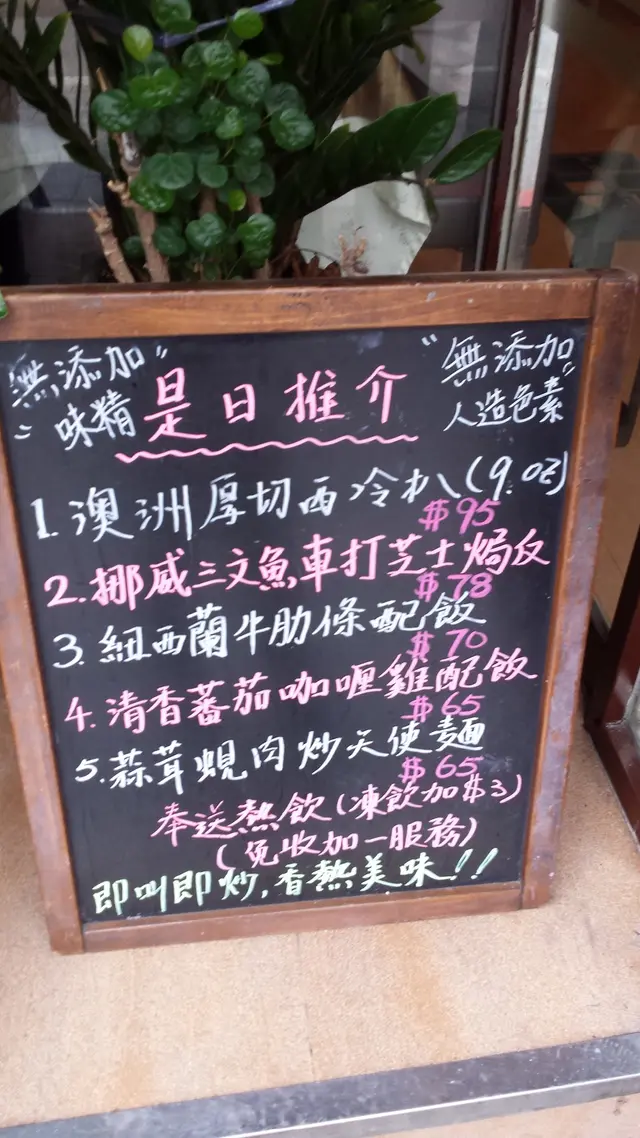 "無添加"
味精
是日推介
"無添加"
人造色素
1. 澳洲厚切西冷扒(9.oz)
$95
2. 挪威三文魚車打芝士焗飯
$78
3. 紐西蘭牛肋條配飯
$70
4. 清香蕃茄咖喱雞配飯
$65
5. 蒜茸蜆肉炒天使麵
$65
奉送熱飲(凍飲加$3)
(免收加一服務)
即叫即炒,香熱美味!!